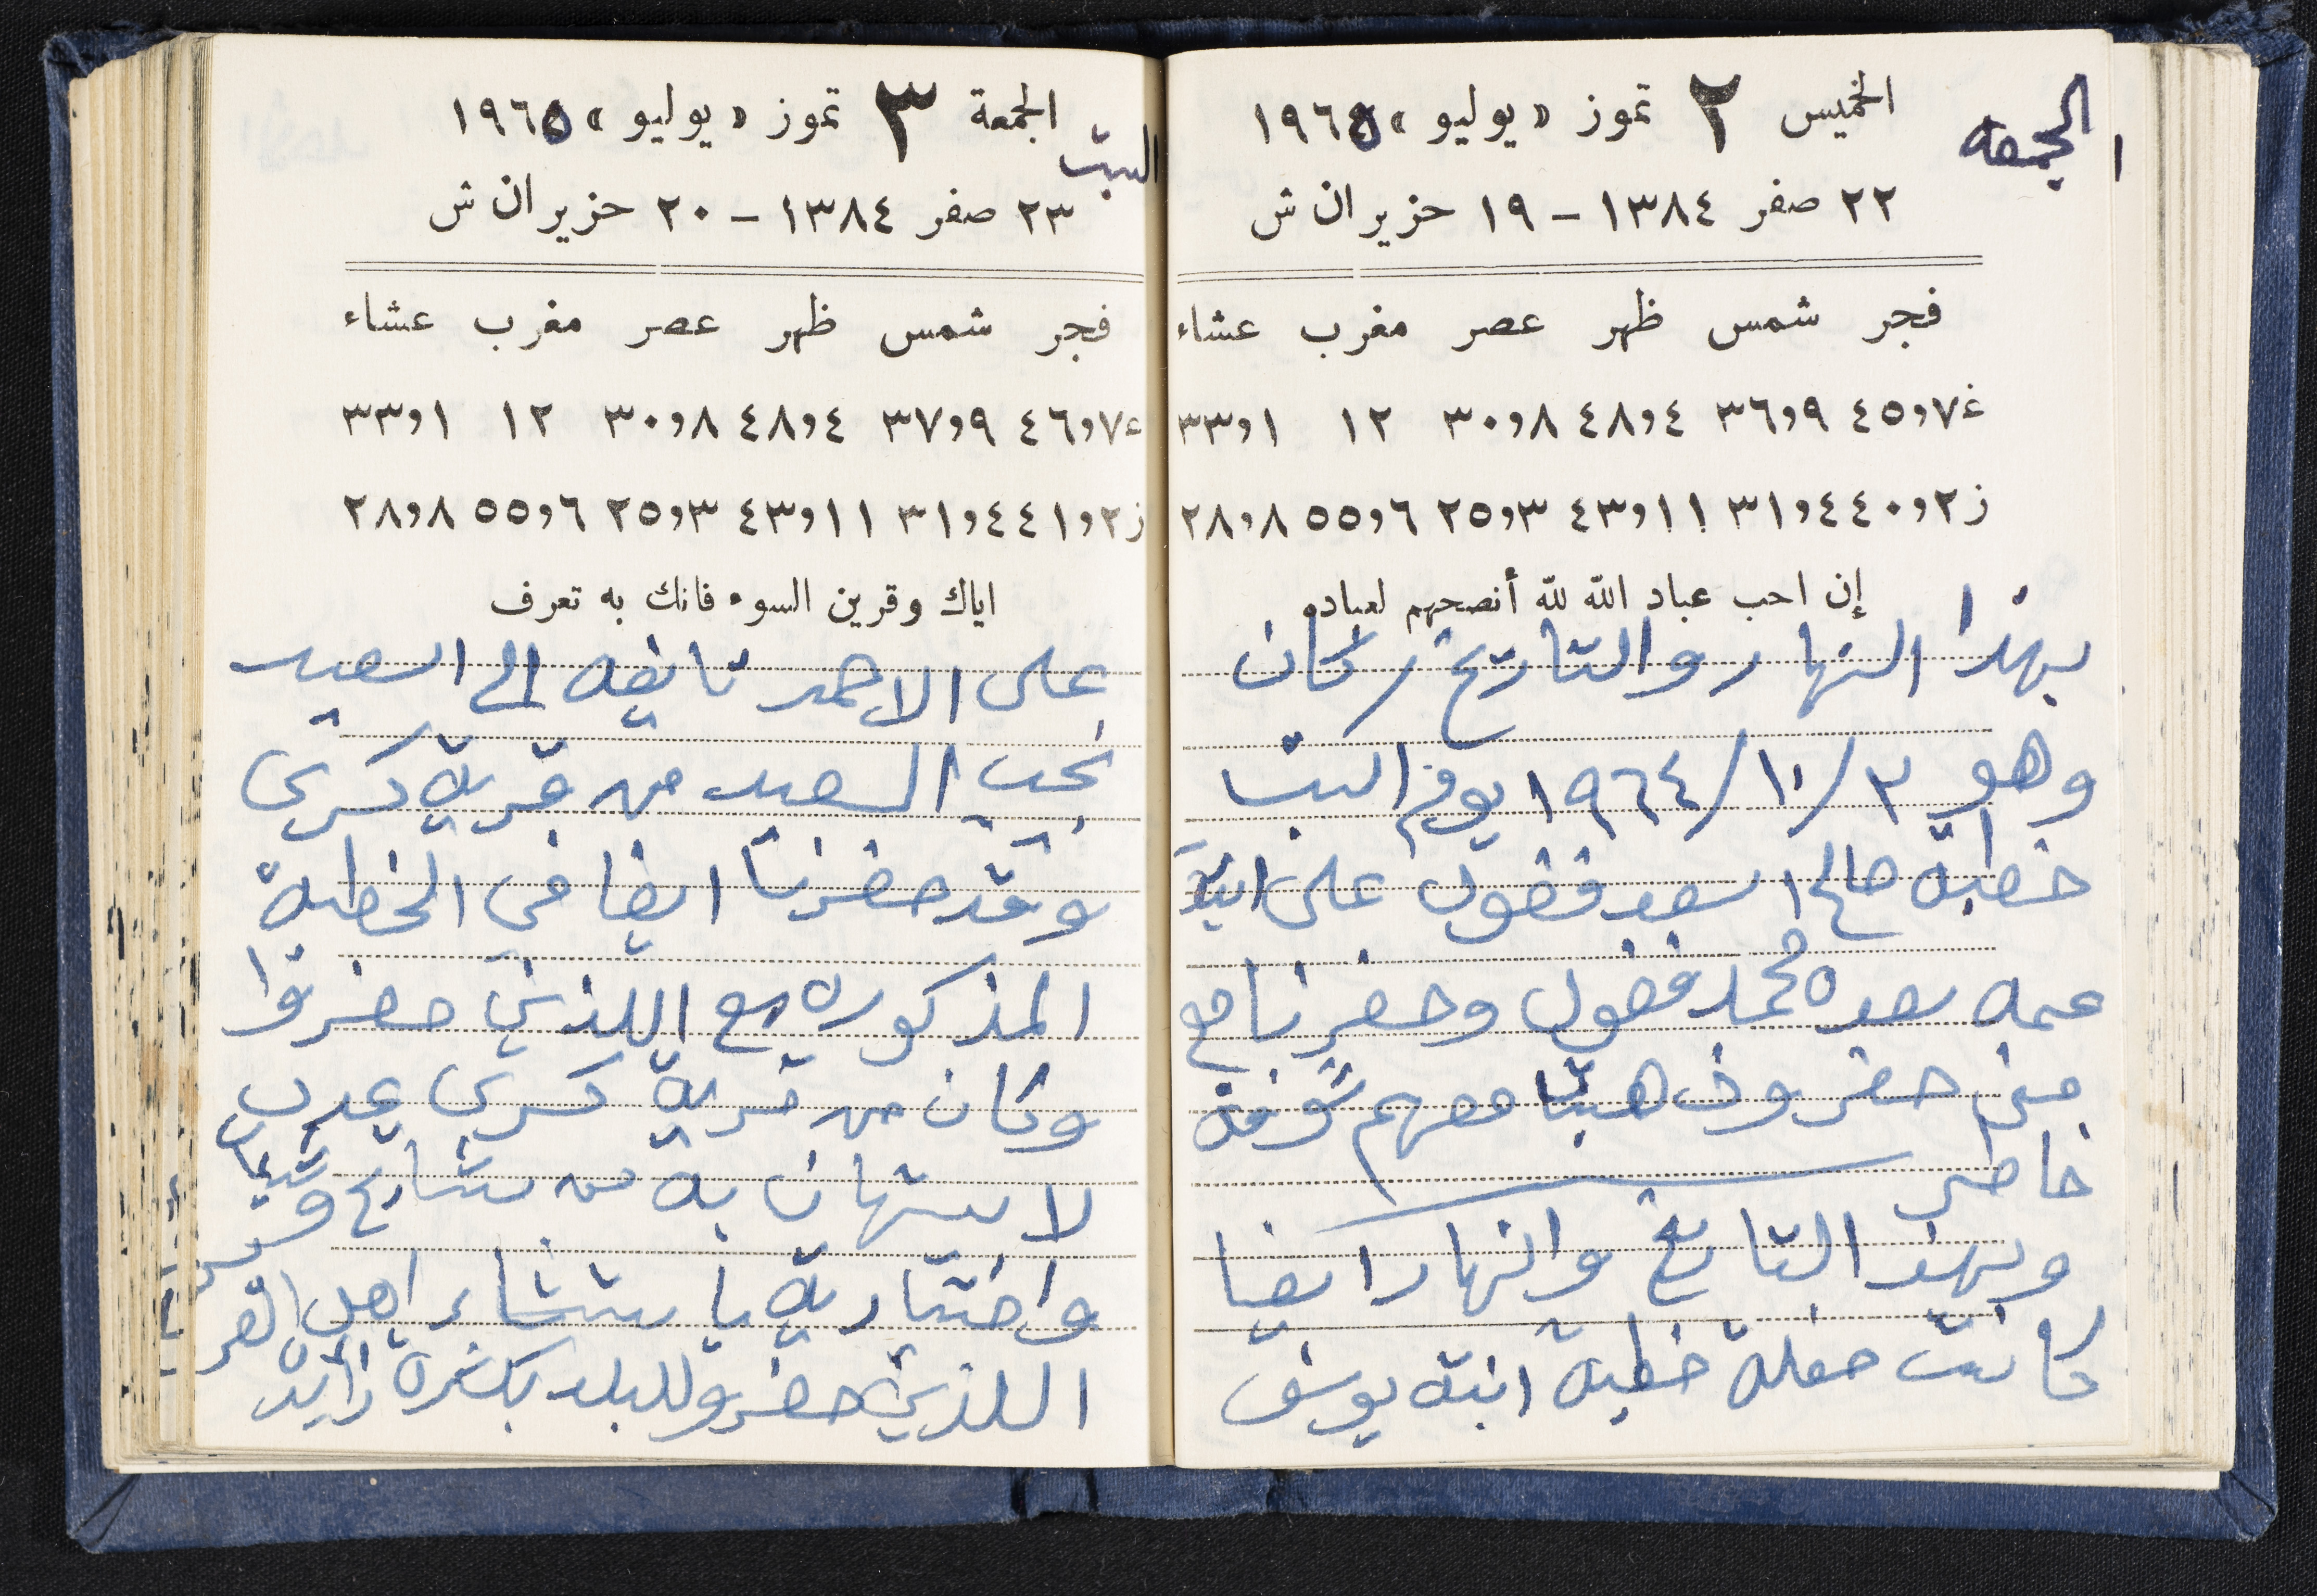 الجمعه
الخميس ٢ تموز «يوليو» ١٩٦٥
٢٢ صفر ١٣٨٤ - ١٩ حزيران ش
فجر شمس ظهر عصر مغرب عشاء
غ ٧و٤٥ ٩و٣٦ ٤و٤٨ ٨و٣٠ ١٢ ١و٣٣
ز ٢و٤٠ ٤و٣١ ١١و٤٣ ٣و٢٥ ٦و٥٥ ٨و٢٨
إن احب عباد الله لله أنصحهم لعباده
بهذا النهار والتاريخ كان
وهو ١٩٦٤/١٠/٣ يوم السبت
خطبة صالح اسعد فضول على ابنة
عمه سعده محمد فضول وحضرنا مع
من حضرو وذهبنا معهم
خاطر
وبهذ التاريخ والنهار ايضا
كانت حفلة خطبة ابنة يوسف
السبت
الجمعة ٣ تموز «يوليو» ١٩٦٥
٢٣ صفر ١٣٨٤ - ٢٠ حزيران ش
فجر شمس ظهر عصر مغرب عشاء
غ ٧و٤٦ ٩و٣٧ ٤و٤٨ ٨و٣٠ ١٢ ١و٣٣
ز ٢و٤١ ٤و٣١ ١١و٤٣ ٣و٢٥ ٦و٥٥ ٨و٢٨
اياك وقرين السوء فانك به تعرف
على الاحمد نايفه الى السعيد
نجيب السعيد من قرية كسرى
وقد حضرنا ايضا في الخطبة
المذكوره مع اللذين حضروا
وكان من قرية كسرى عدد
لا يستهان به من مشايخ وشبان
واختيارية يا ستثناء اهل
اللذين حضرو للبلد بكثرة زايدة